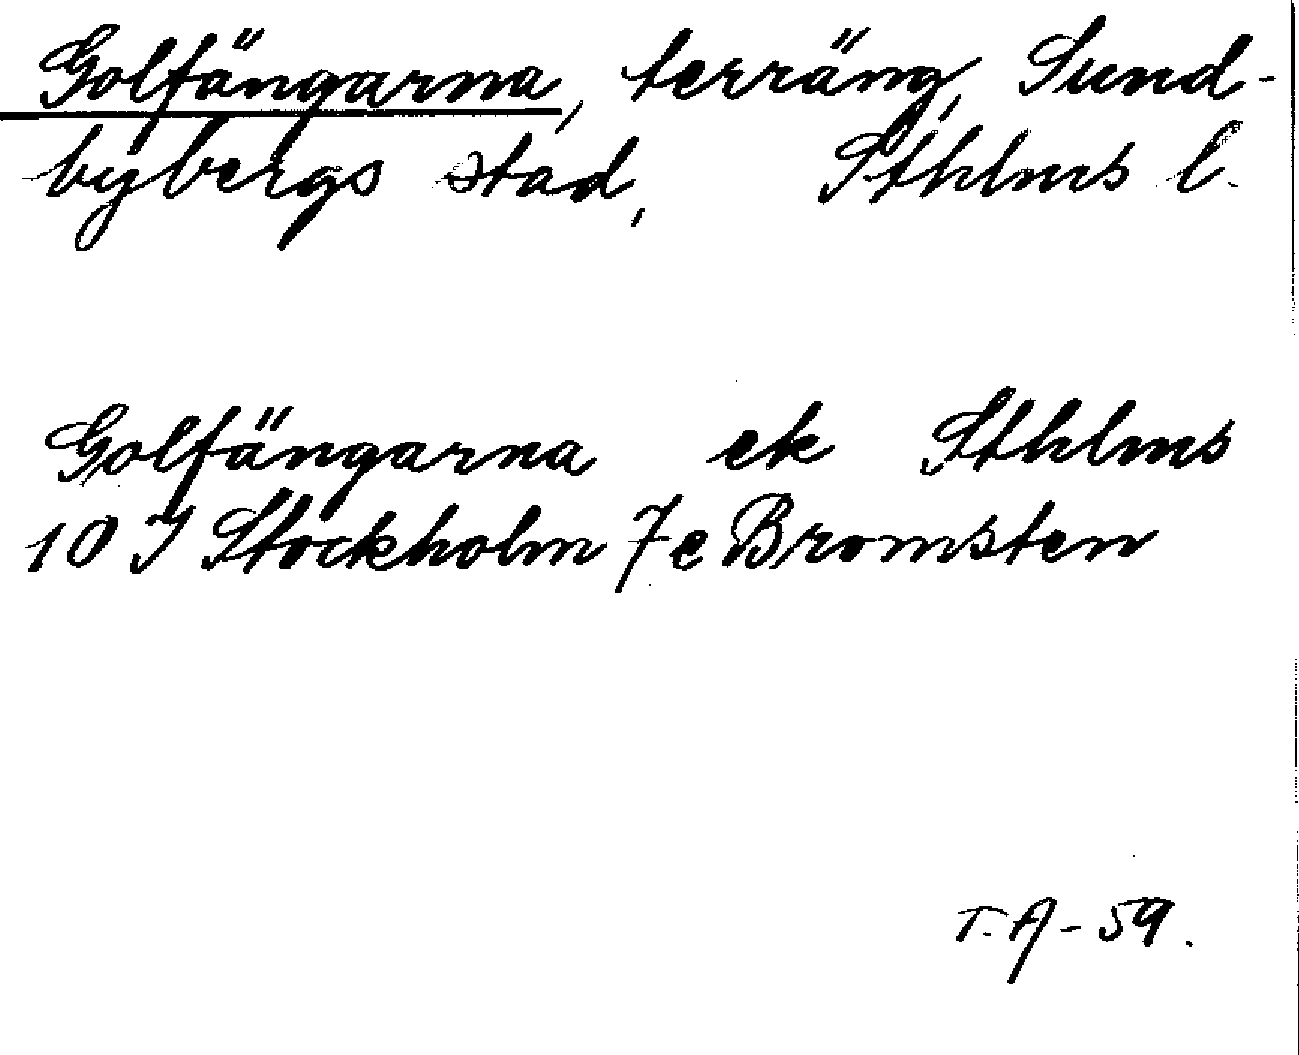 Golfängarna, terräng, Sund-
bybergs stad, Sthlms l.
Golfängarna ek Sthlms
10 I Stockholm 7e Bromsten
T. A - 59.